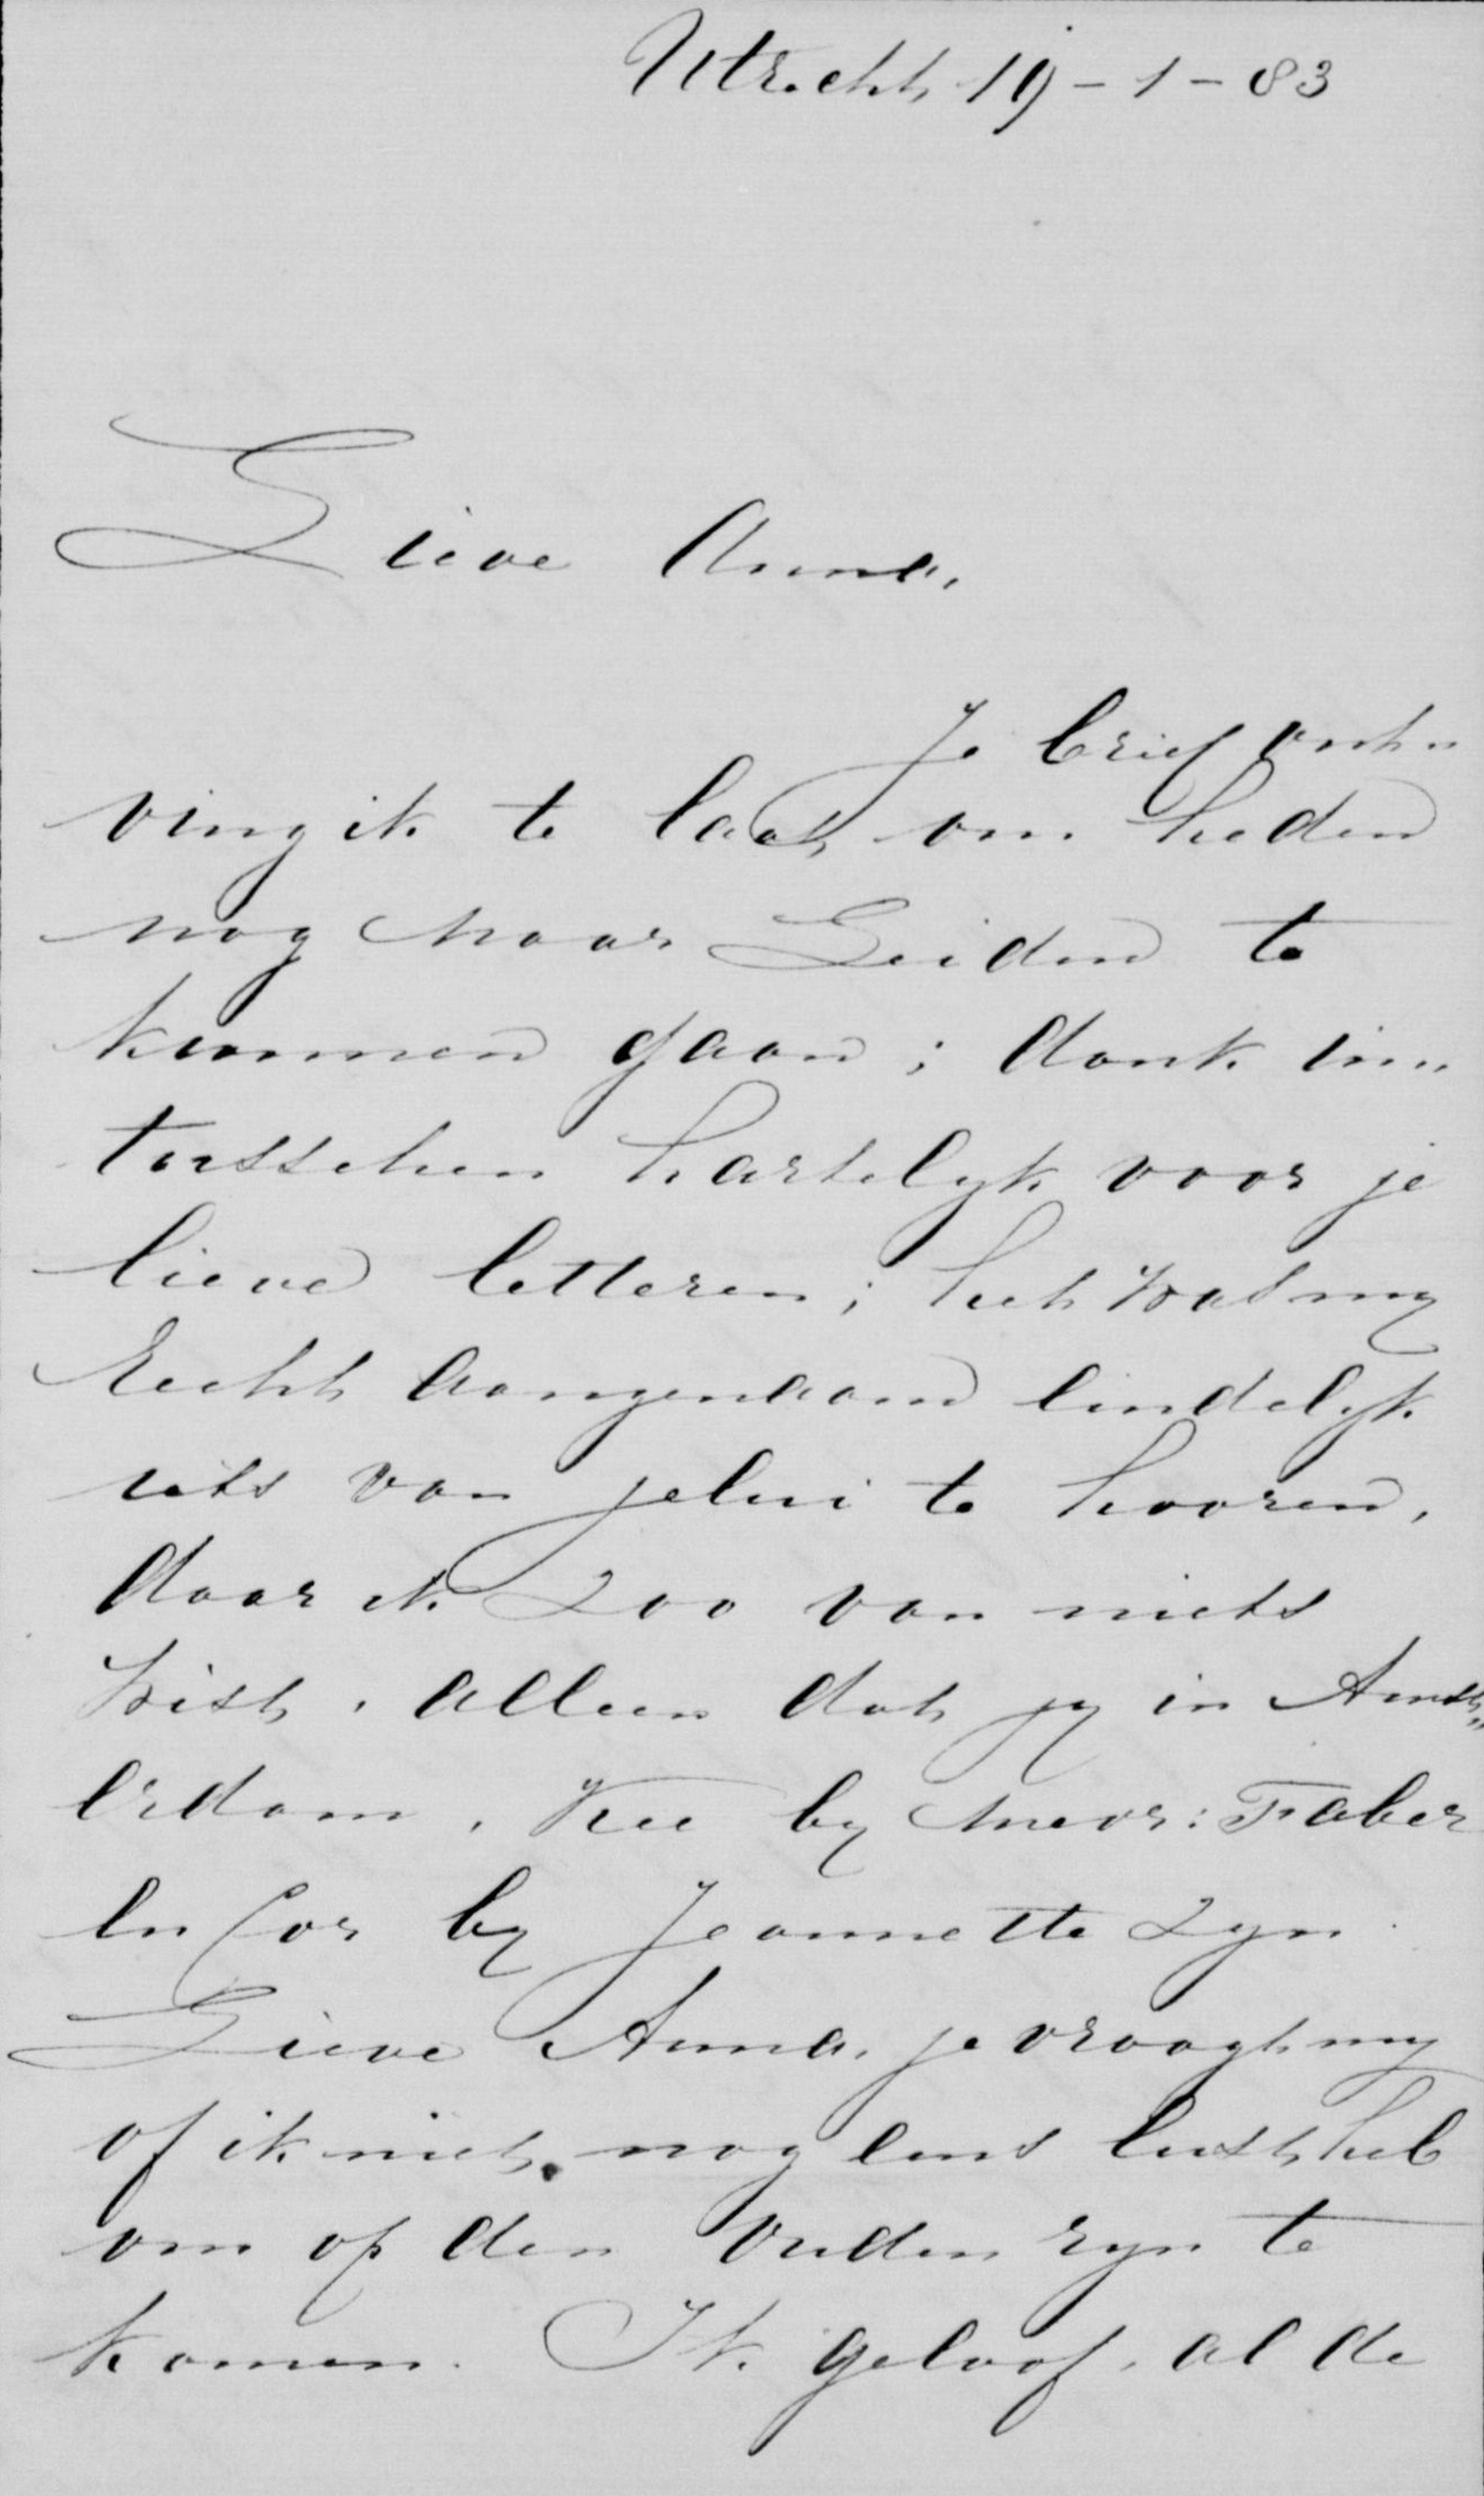 Utrecht 19-1-83
Lieve Anna,
Je brief ont„
ving ik te laat om heden
nog naar Leiden te
kunnen gaan; dank in„
tusschen hartelyk voor je
lieve letteren; het was my
recht aangenaam eindelyk
iets van jelui te hooren,
daar ik zoo van niets
wist, alleen dat jy in Amst„
erdam, Kee by Mevr: Faber
en Cor by Jeannette zyn.
Lieve Anna, je vraagt my
of ik niet nog eens lust heb
om op den Ouden ryn te
komen. Ik geloof, al de